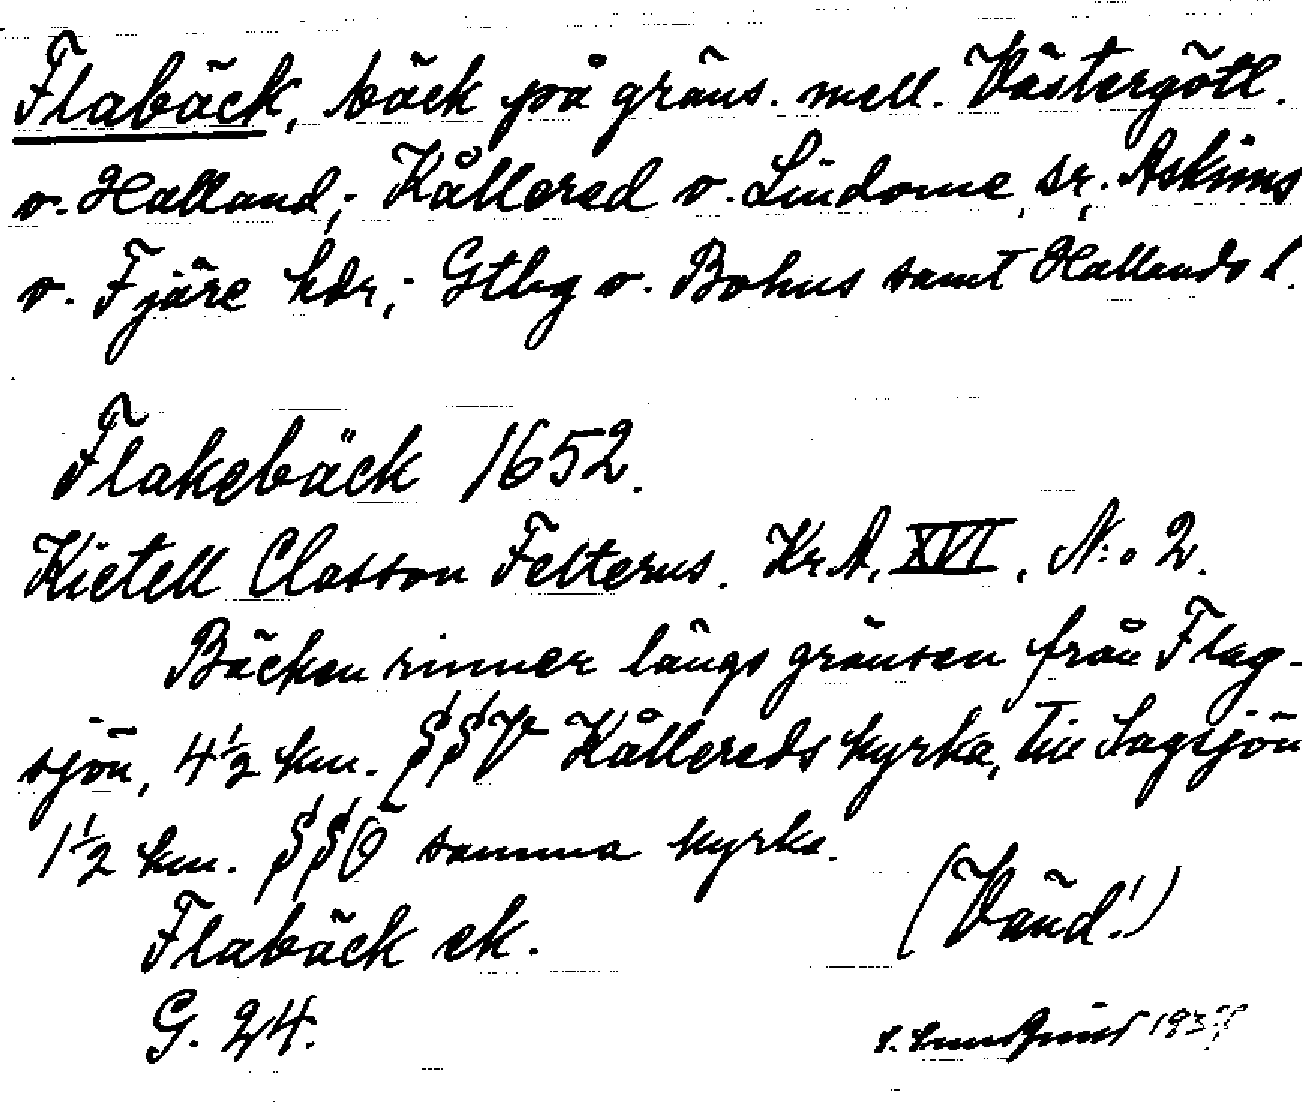 Flabäck, bäck på gräns. mell. Västergötl.
o. Halland; Kållered o. Lindome sr, Askims
o. Fjäre hdr; Gtbg o. Bohus samt Hallands l.
Flakebäck 1652.
Kietell Classon Felterus. Kr.A. XVI, N:o 2.
Bäcken rinner längs gränsen från Flag-
sjön, 4½ km. SSV Kållereds kyrka, till Sagsjön
1½ km. SSÖ samma kyrka.
Flabäck ek.
(Vänd!)
G. 24.